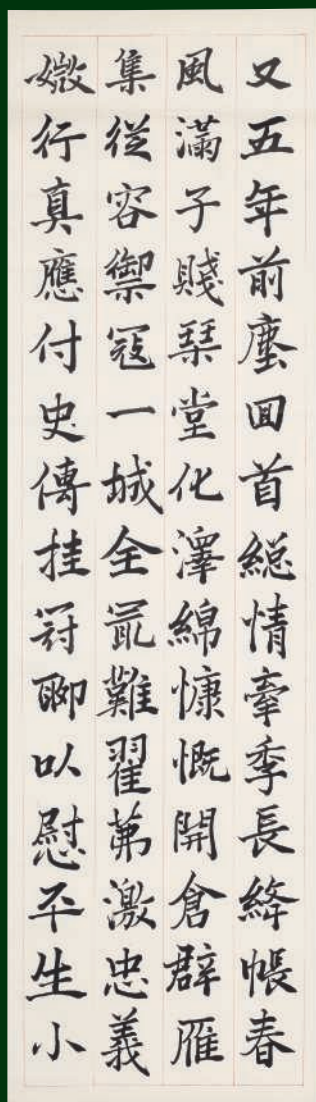 又五年前塵囬首緫情牽季長絳帳春
風滿子賤琹堂化澤綿慷慨開倉群雁
集從容禦寇一城全冣難翟茀激忠義
媺行真應付史傳挂冠聊以慰平生小